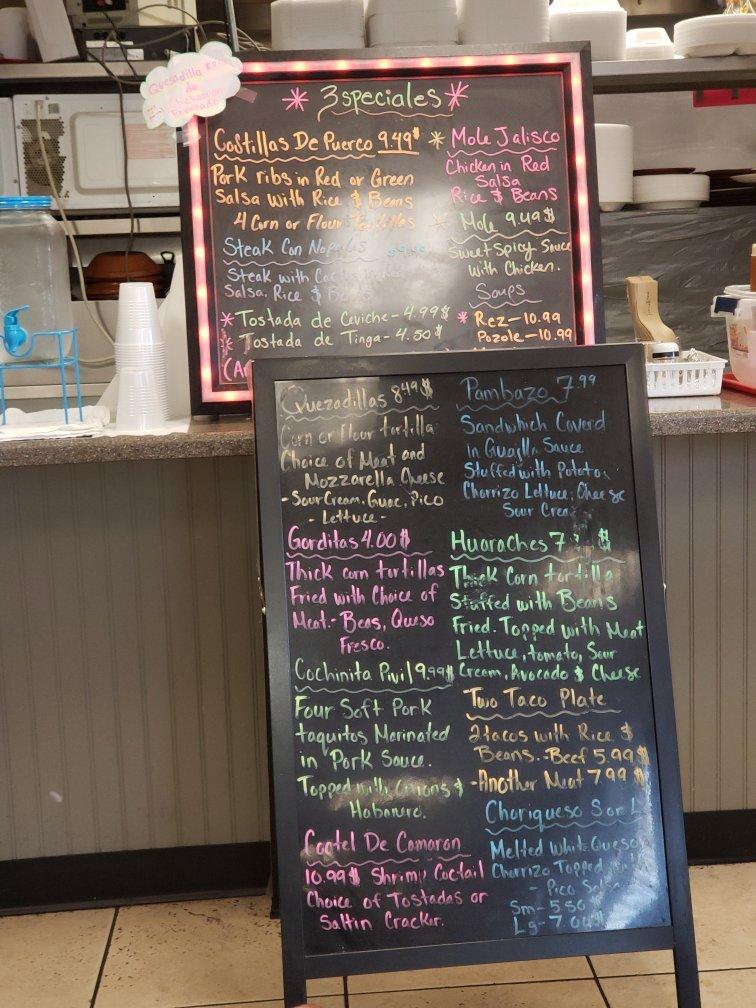 Quesadilla
de
Chicharron
Prensado
3 speciales
Costillas De Puerco 9.49$
Pork ribs in Red or Green
Salsa with Rice & Beans
4 Corn or Flour Tortillas
Steak Con Nopales
Steak with in Red
Salsa, Rice &
Tostada de Ceviche - 4.99$
Tostada de Tinga - 4.50$
Mole Jalisco
Chicken in Red
Salsa
Rice & Beans
Mole 9.49$
Sweet Spicy Sauce
With Chicken.
Soups
Rez - 10.99
Pozole - 10.99
Quezadillas 8.49$
Corn or Flour tortilla
Choice of Meat and
Mozzarella Cheese
- Sour Cream, Guac, Pico
- Lettuce -
Gorditas 4.00$
Thick corn tortillas
Fried with Choice of
Meat - Beas, Queso
Fresco.
Cochinita Pivil 9.99$
Four Soft Pork
taquitos Marinated
in Pork Sauce.
Topped with Onions &
Habanero.
Coctel De Camaron
10.99$ Shrimp Coctail
Choice of Tostadas or
Saltin Cracker.
Pambazo 7.99
Sandwhich Coverd
in Guajlla Sauce
Stuffed with Potatos
Chorrizo Lettuce, Cheese
Sour
Huaraches
Thick Corn tortilla
Stuffed with Beans
Fried. Topped with Meat
Lettuce, tomato, Sour
Cream, Avocado & Cheese
Two Taco Plate
2 tacos with Rice &
Beans. - Beef 5.99$
- Another Meat 7.99$
Choriqueso
Melted White Queso
Chorrizo Topped
- Pico Salsa
Sm - 5.50
Lg -